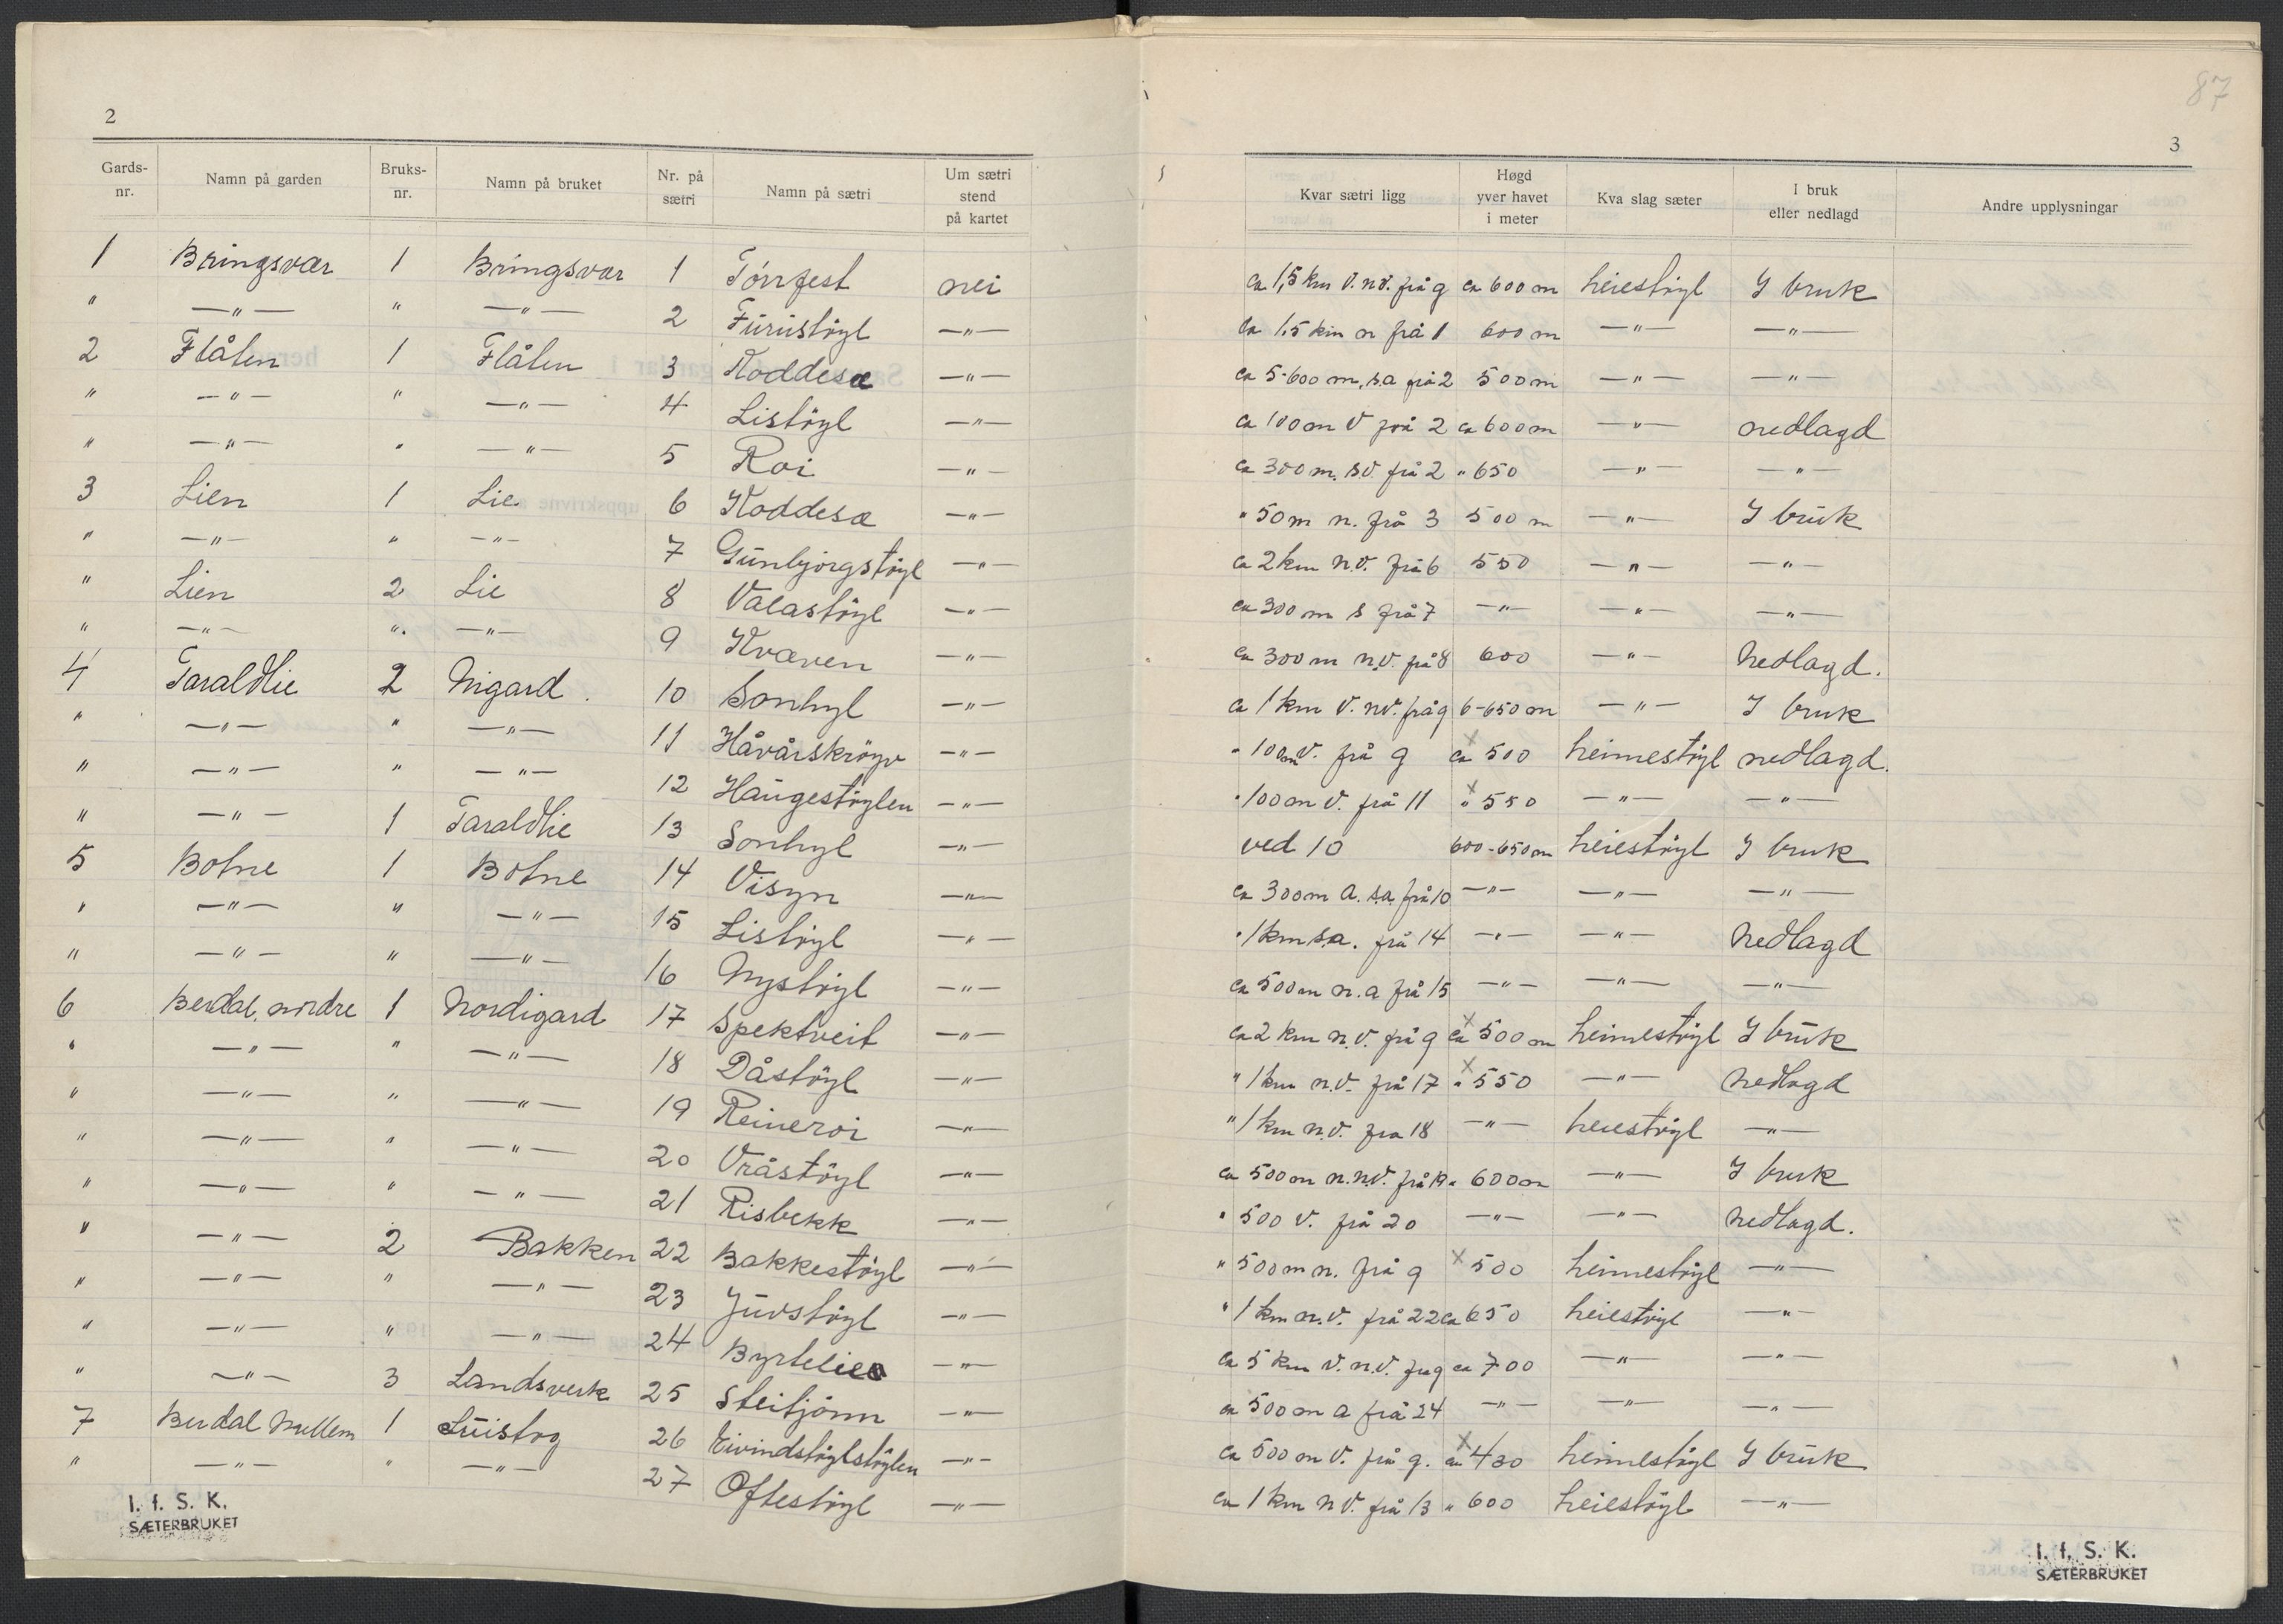 2
Gards-nr. Namn på garden Bruks-nr. Namn på bruket Nr. på sætri Namn på sætri Um sætri stend på kartet
1 Bringsvær 1 Bringsvær 1 Tórrfest nei
" —"— " —"— 2 Furustöyl —"—
2 Flåten 1 Flåten 3 Koddesæ —"—
" —"— " —"— 4 Listöyl —"—
" —"— " —"— 5 Roi —"—
3 Lien 1 Lie 6 Koddesæ —"—
" —"— " —"— 7 Gunbjörgstöyl —"—
" Lien 2 Lie 8 Valastöyl —"—
" —"— ". —"— 9 Kræven —"—
4 Taraldlie 2 Nigard . 10 Sonhyl —"—
" —"— " —"— 11 Håvårskröyv —"—
" —"— " —"— 12 Haugestöylen —"—
" —"— 1 Taraldlie 13 Sonhyl —"—
5 Botne 1 Botne 14 Visyn —"—
" —"— " —"— 15 Listöyl —"—
" —"— " —"— 16 Nystöyl —"—
6 Berdal, nordre 1 Nordigard 17 Spektveit —"—
" —"— " —"— 18 Dåstöyl —"—
" —"— " —"— 19 Reineroi —"—
" —"— " —"— 20 Vråstöyl —"—
" —"— " —"— 21 Risbekk —"—
" —"— 2 Bakken 22 Bakkestöyl —"—
" —"— " —"— 23 Juvstöyl —"—
" —"— " —"— 24 Byrtelie —"—
" —"— 3 Landsverk 25 Steitjönn —"—
7 Berdal 1 26 Eivindstöylstöylen —"—
" —"— " —"— 27 Oftestöyl —"—
I. f. S. K.
SÆTERBRUKET
87
3
Kvar sætri ligg Høgd yver havet i meter Kva slag sæter I bruk eller nedlagd Andre upplysningar
ca 1,5 km v.nv. frå g ca 600 m heiestöyl I bruk
ca 1.5 km n frå 1 600 m —"— —"—
ca 5-600 m, s.a frå 2 500 m —"— —"—
ca 100 m v frå 2 ca 600 m —"— nedlagd
ca 300 m. s.v. frå 2 " 650 —"— —"—
" 50 m n. frå 3 500 m —"— I bruk
ca 2 km n.v. frå 6 550 —"— —"—
ca 300 m s frå 7 —"— —"— —"—
ca 300 m n.v. frå 8 600 —"— Nedlagd.
ca 1 km v. nv. frå g 6-650 m —"— I bruk
" 100 m v. frå g ca x 500 heimestöyl nedlagd.
" 100 m v. frå 11 " x 550 —"— —"—
ved 10 600-650 m heiestöyl I bruk
ca 300 m a. s.a. frå 10 —"— —"— —"—
" 1 km s.a. frå 14 —"— —"— Nedlagd
ca 500 m n.a frå 15 —"— —"— —"—
ca 2 km n.v. frå g ca x 500 m heimestöyl I bruk
" 1 km n.v. frå 17 " x 550 —"— Nedlagd
" 1 km n.v. fra 18 —"— heiestöyl —"—
ca 500 m n.n.v. frå 19 " 600 m —"— I bruk
" 500 v. frå 20 —"— —"— Nedlagd.
" 500 m n. frå g x 500 heimestöyl —"—
" 1 km n.v. frå 22 ca 650 heiestöyl —"—
ca 5 km v. n.v. g ca 700 —"— —"—
ca 500 m a frå 24 —"— —"— —"—
ca 500 m v. frå g. ca x 430 heimestöyl I bruk
ca 1 km n v. frå 13 " 600 heiestöyl —"—
I. f. S. K.
SÆTERBRUKET